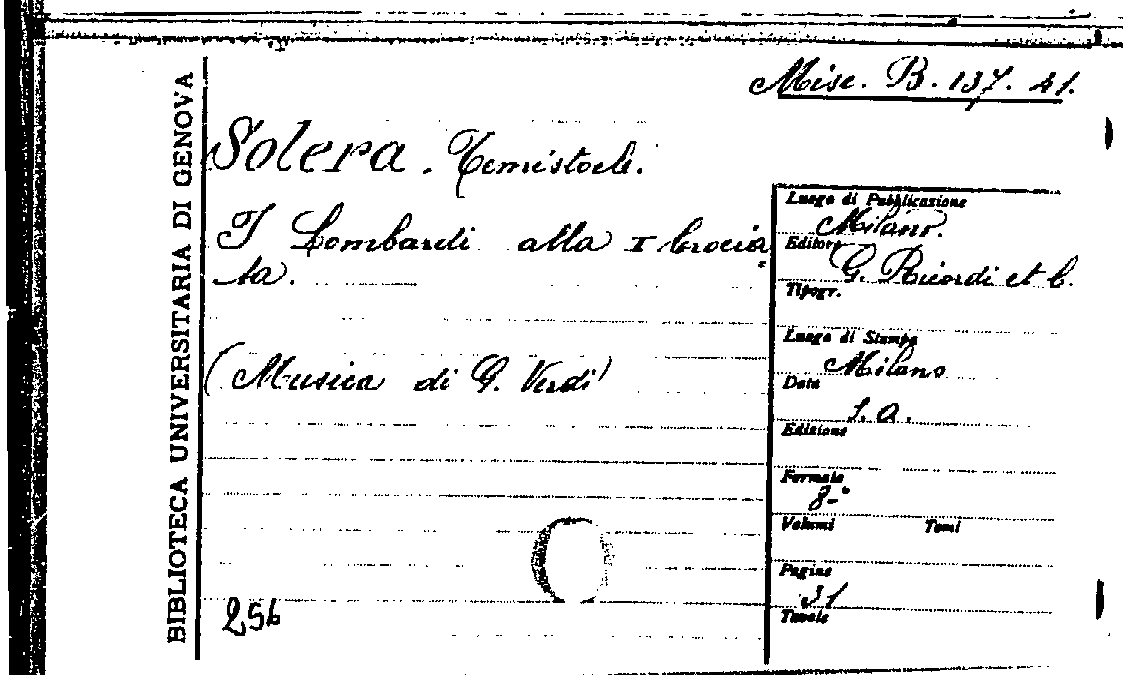 Misc. B. 137. 41.
BIBLIOTECA UNIVERSITARIA DI GENOVA
Solera. Temistocle.
I Lombardi alla I Crocia
ta.
(Musica di G. Verdi)
256
Luogo di Pubblicazione
Milano.
Editore
G. Ricordi et C.
Tipogr.
Luogo di Stampa
Milano
Data
s. a.
Edizione
Formato
8-°
Volumi Tomi
Pagine
31
Tavole